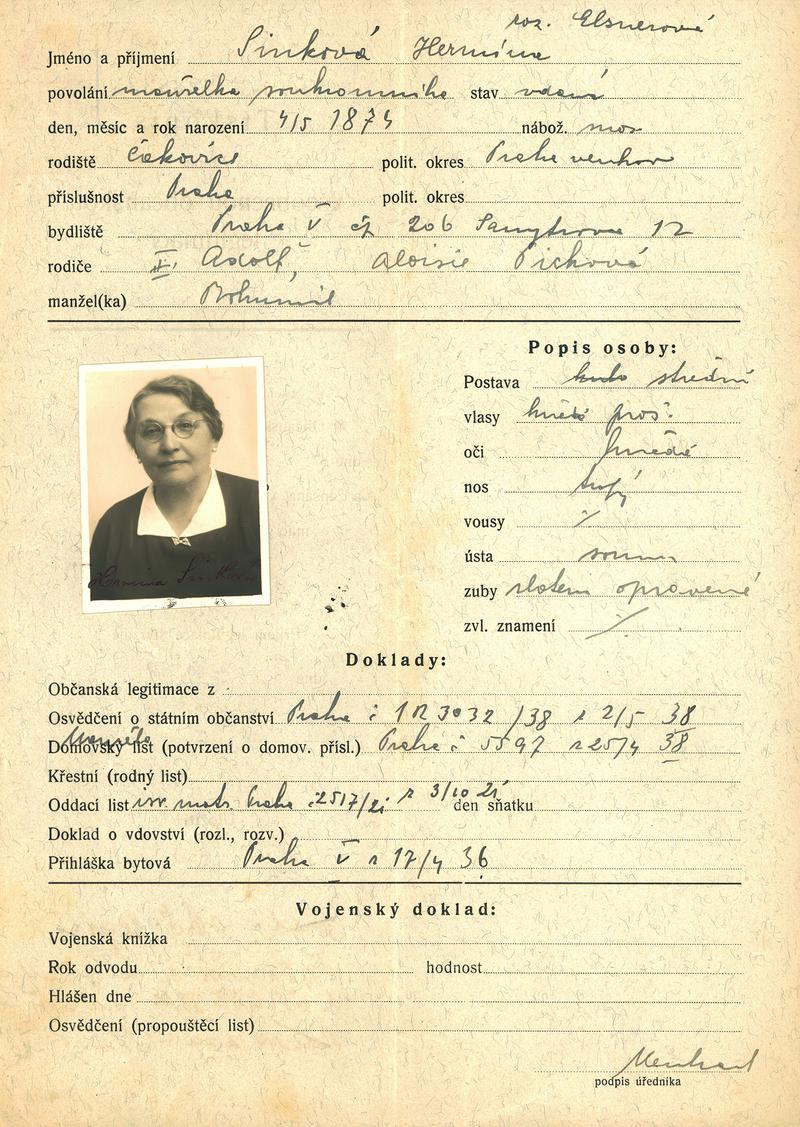 roz. Elsnerová
Jméno a příjmení Sinková Hermina
povolání manželka soukromníka stav vdaná
den, měsíc a rok narození 4/5 1874 nábož. mos
rodiště Čakovice polit. okres Praha venkov
příslušnost Praha polit. okres
bydliště Praha V čp 206 12
rodiče Adolf, Aloisie Picková
manžel(ka) Bohumil
Popis osoby:
Postava střední
vlasy hnědé proš.
oči hnědé
nos tupý
vousy
ústa souměr
zuby zlatem opravené
zvl. znamení
Hermina Sinková
Doklady:
Občanská legitimace z
Osvědčení o státním občanství Praha č 1R 3032 /38 z 2/5 38
Domovský list (potvrzení o domov. přísl.) Praha č 5597 z 25/4 38
Křestní (rodný list)
Oddací list isr. matr. Praha 2517/21 z 3/10 21 den sňatku
Doklad o vdovství (rozl., rozv.)
Přihláška bytová Praha V z 17/4 36
Vojenský doklad:
Vojenská knížka
Rok odvodu hodnost
Hlášen dne
Osvědčení (propouštěcí list)
podpis úředníka